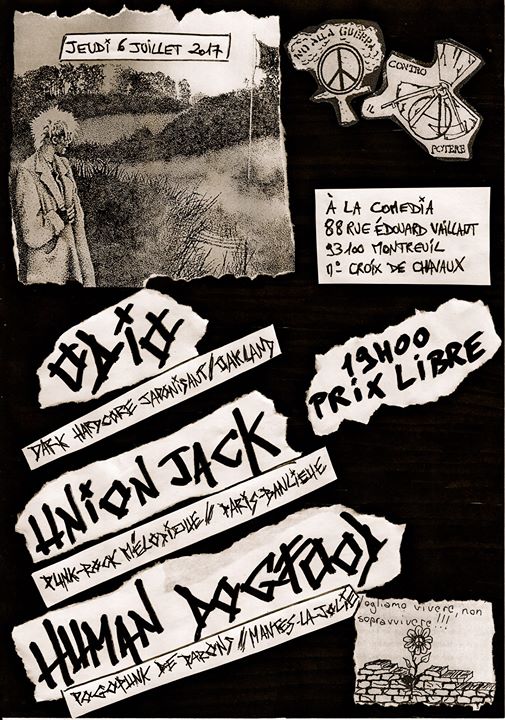 JEUDI 6 JUILLET 2017
NO ALLA GUERRA
CONTRO
IL
POTERE
À LA COMEDIA
88 RUE ÉDOUARD VAILLANT
93100 MONTREUIL
M° CROIX DE CHAVAUX
ODIO
DARK HARDCORE JAPONISANT // OAKLAND
19H00
PRIX LIBRE
UNION JACK
PUNK-ROCK MÉLODIEUX // PARIS-BANLIEUE
HUMAN DOGFOOD
POGOPUNK DE DARONS // MANTES-LA-JOLIE
Vogliamo vivere, non
sopravvivere!!!